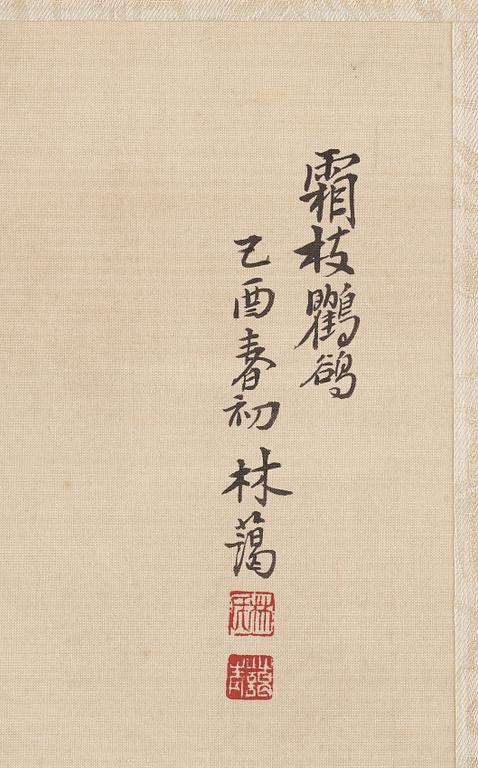 霜枝鸜鵒
己酉春初 林藹